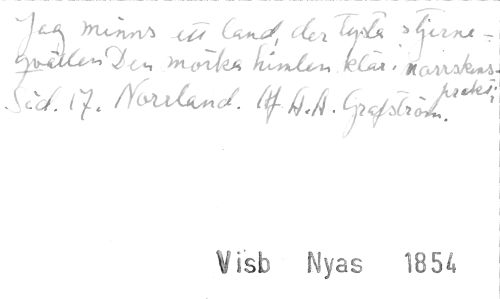 Jag minns ett land, der tysta stjerne-
qvällen Den mörka himlen klär i norrskens-
prakt;
Sid. 17. Norrland. Af A.A. Grafström.
Visb Nyas 1854